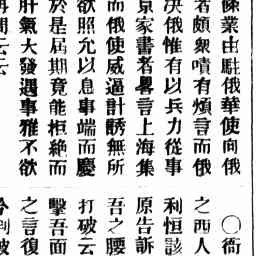 條業由駐俄華使向俄
者頗衆嘖有煩言而俄
决俄惟有以兵力從事
京家書者畧言上海集
而俄使威逼計誘無所
欲照允以息事端而慶
於是屆期竟能拒絶而
肝氣大發遇事雅不欲
問云云
〇衙
之西人
利恒該
原告訴
吾之腰
打破云
擊吾面
之言復